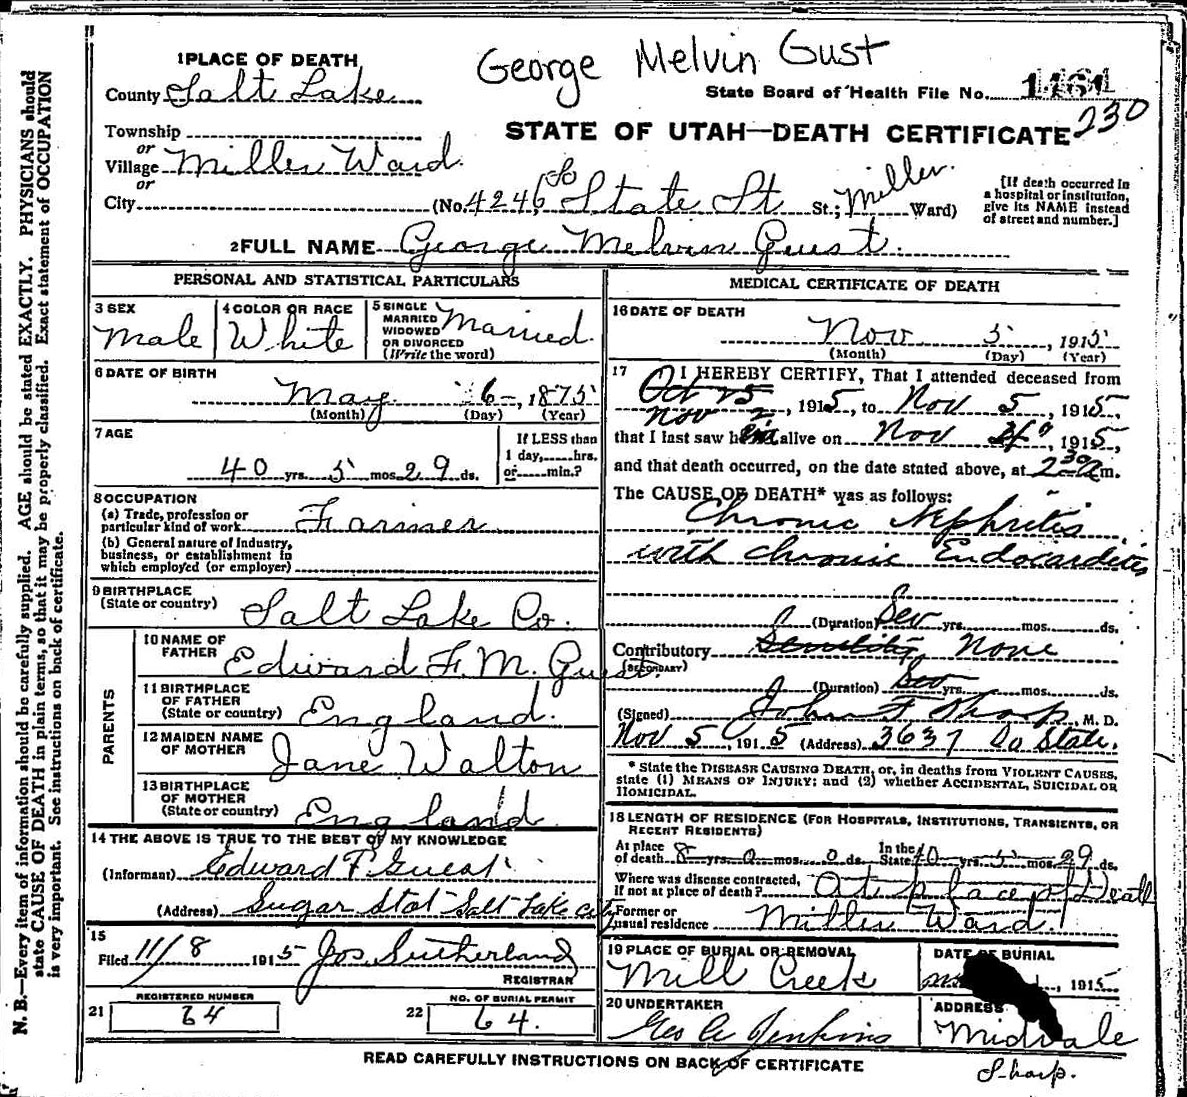 George Melvin Gust
1 PLACE OF DEATH
County Salt Lake
State Board of Health File No. 1161
230
Township
or
Village Miller Ward.
or
City
STATE OF UTAH—DEATH CERTIFICATE
(No. 4246 So State St St.; Miller. Ward)
[If death occurred in
a hospital or institution,
give its NAME instead
of street and number.]
2 FULL NAME George Melvin Guest.
PERSONAL AND STATISTICAL PARTICULARS
3 SEX
Male
4 COLOR OR RACE
White
5 SINGLE
MARRIED
WIDOWED
OR DIVORCED
(Write the word)
Married.
6 DATE OF BIRTH
May 6, 1875
(Month) (Day) (Year)
7 AGE
40 yrs. 5 mos. 29 ds.
If LESS than
1 day, hrs.
or min.?
8 OCCUPATION
(a) Trade, profession or
particular kind of work Farmer
(b) General nature of industry,
business, or establishment in
which employed (or employer)
9 BIRTHPLACE
(State or country) Salt Lake Co.
PARENTS
10 NAME OF
FATHER Edward F. M. Guest.
11 BIRTHPLACE
OF FATHER
(State or country) England.
12 MAIDEN NAME
OF MOTHER Jane Walton
13 BIRTHPLACE
OF MOTHER
(State or country) England.
14 THE ABOVE IS TRUE TO THE BEST OF MY KNOWLEDGE
(Informant) Edward F Guest
(Address) Sugar Stat Salt Lake City
15
Filed 11/8 1915 Jos. Sutherland
REGISTRAR
21 REGISTERED NUMBER
64
22 NO. OF BURIAL PERMIT
64.
MEDICAL CERTIFICATE OF DEATH
16 DATE OF DEATH
Nov 5, 1915
(Month) (Day) (Year)
17 I HEREBY CERTIFY, That I attended deceased from
Oct 25
Nov 2, 1915, to Nov 5, 1915,
that I last saw him alive on Nov 4, 1915,
and that death occurred, on the date stated above, at 2 30 a m.
The CAUSE OF DEATH* was as follows:
Chronic Nephritis
with chronic Endocarditis
(Duration) Sev yrs. mos. ds.
Contributory None
(SECONDARY)
(Duration) Sev yrs. mos. ds.
(Signed) John F Sharp, M. D.
Nov 5, 1915 (Address) 3637 So State.
* State the DISEASE CAUSING DEATH, or, in deaths from VIOLENT CAUSES,
state (1) MEANS OF INJURY; and (2) whether ACCIDENTAL, SUICIDAL OR
HOMICIDAL.
18 LENGTH OF RESIDENCE (FOR HOSPITALS, INSTITUTIONS, TRANSIENTS, OR
RECENT RESIDENTS)
At place
of death 8 yrs. 0 mos. 0 ds. In the
State 40 yrs. 5 mos. 29 ds.
Where was disease contracted,
if not at place of death? At place of Death
Former or
usual residence Miller Ward.
19 PLACE OF BURIAL OR REMOVAL
Mill Creek
DATE OF BURIAL
, 1915
20 UNDERTAKER
Geo A Jenkins
ADDRESS
Midvale
READ CAREFULLY INSTRUCTIONS ON BACK OF CERTIFICATE
Sharp.
N. B.—Every item of information should be carefully supplied. AGE should be stated EXACTLY. PHYSICIANS should
state CAUSE OF DEATH in plain terms, so that it may be properly classified. Exact statement of OCCUPATION
is very important. See instructions on back of certificate.